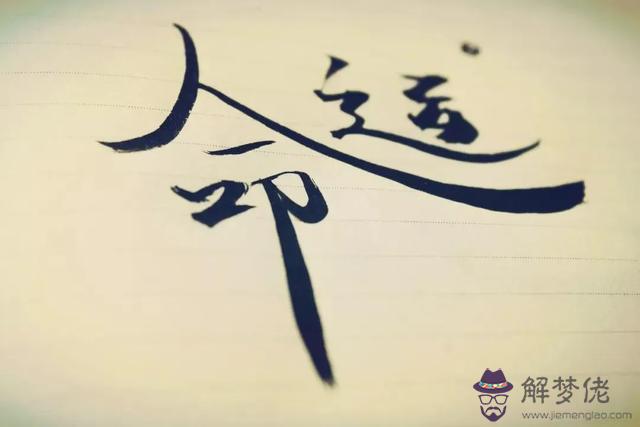 命运
解梦佬
www.jiemenglao.com